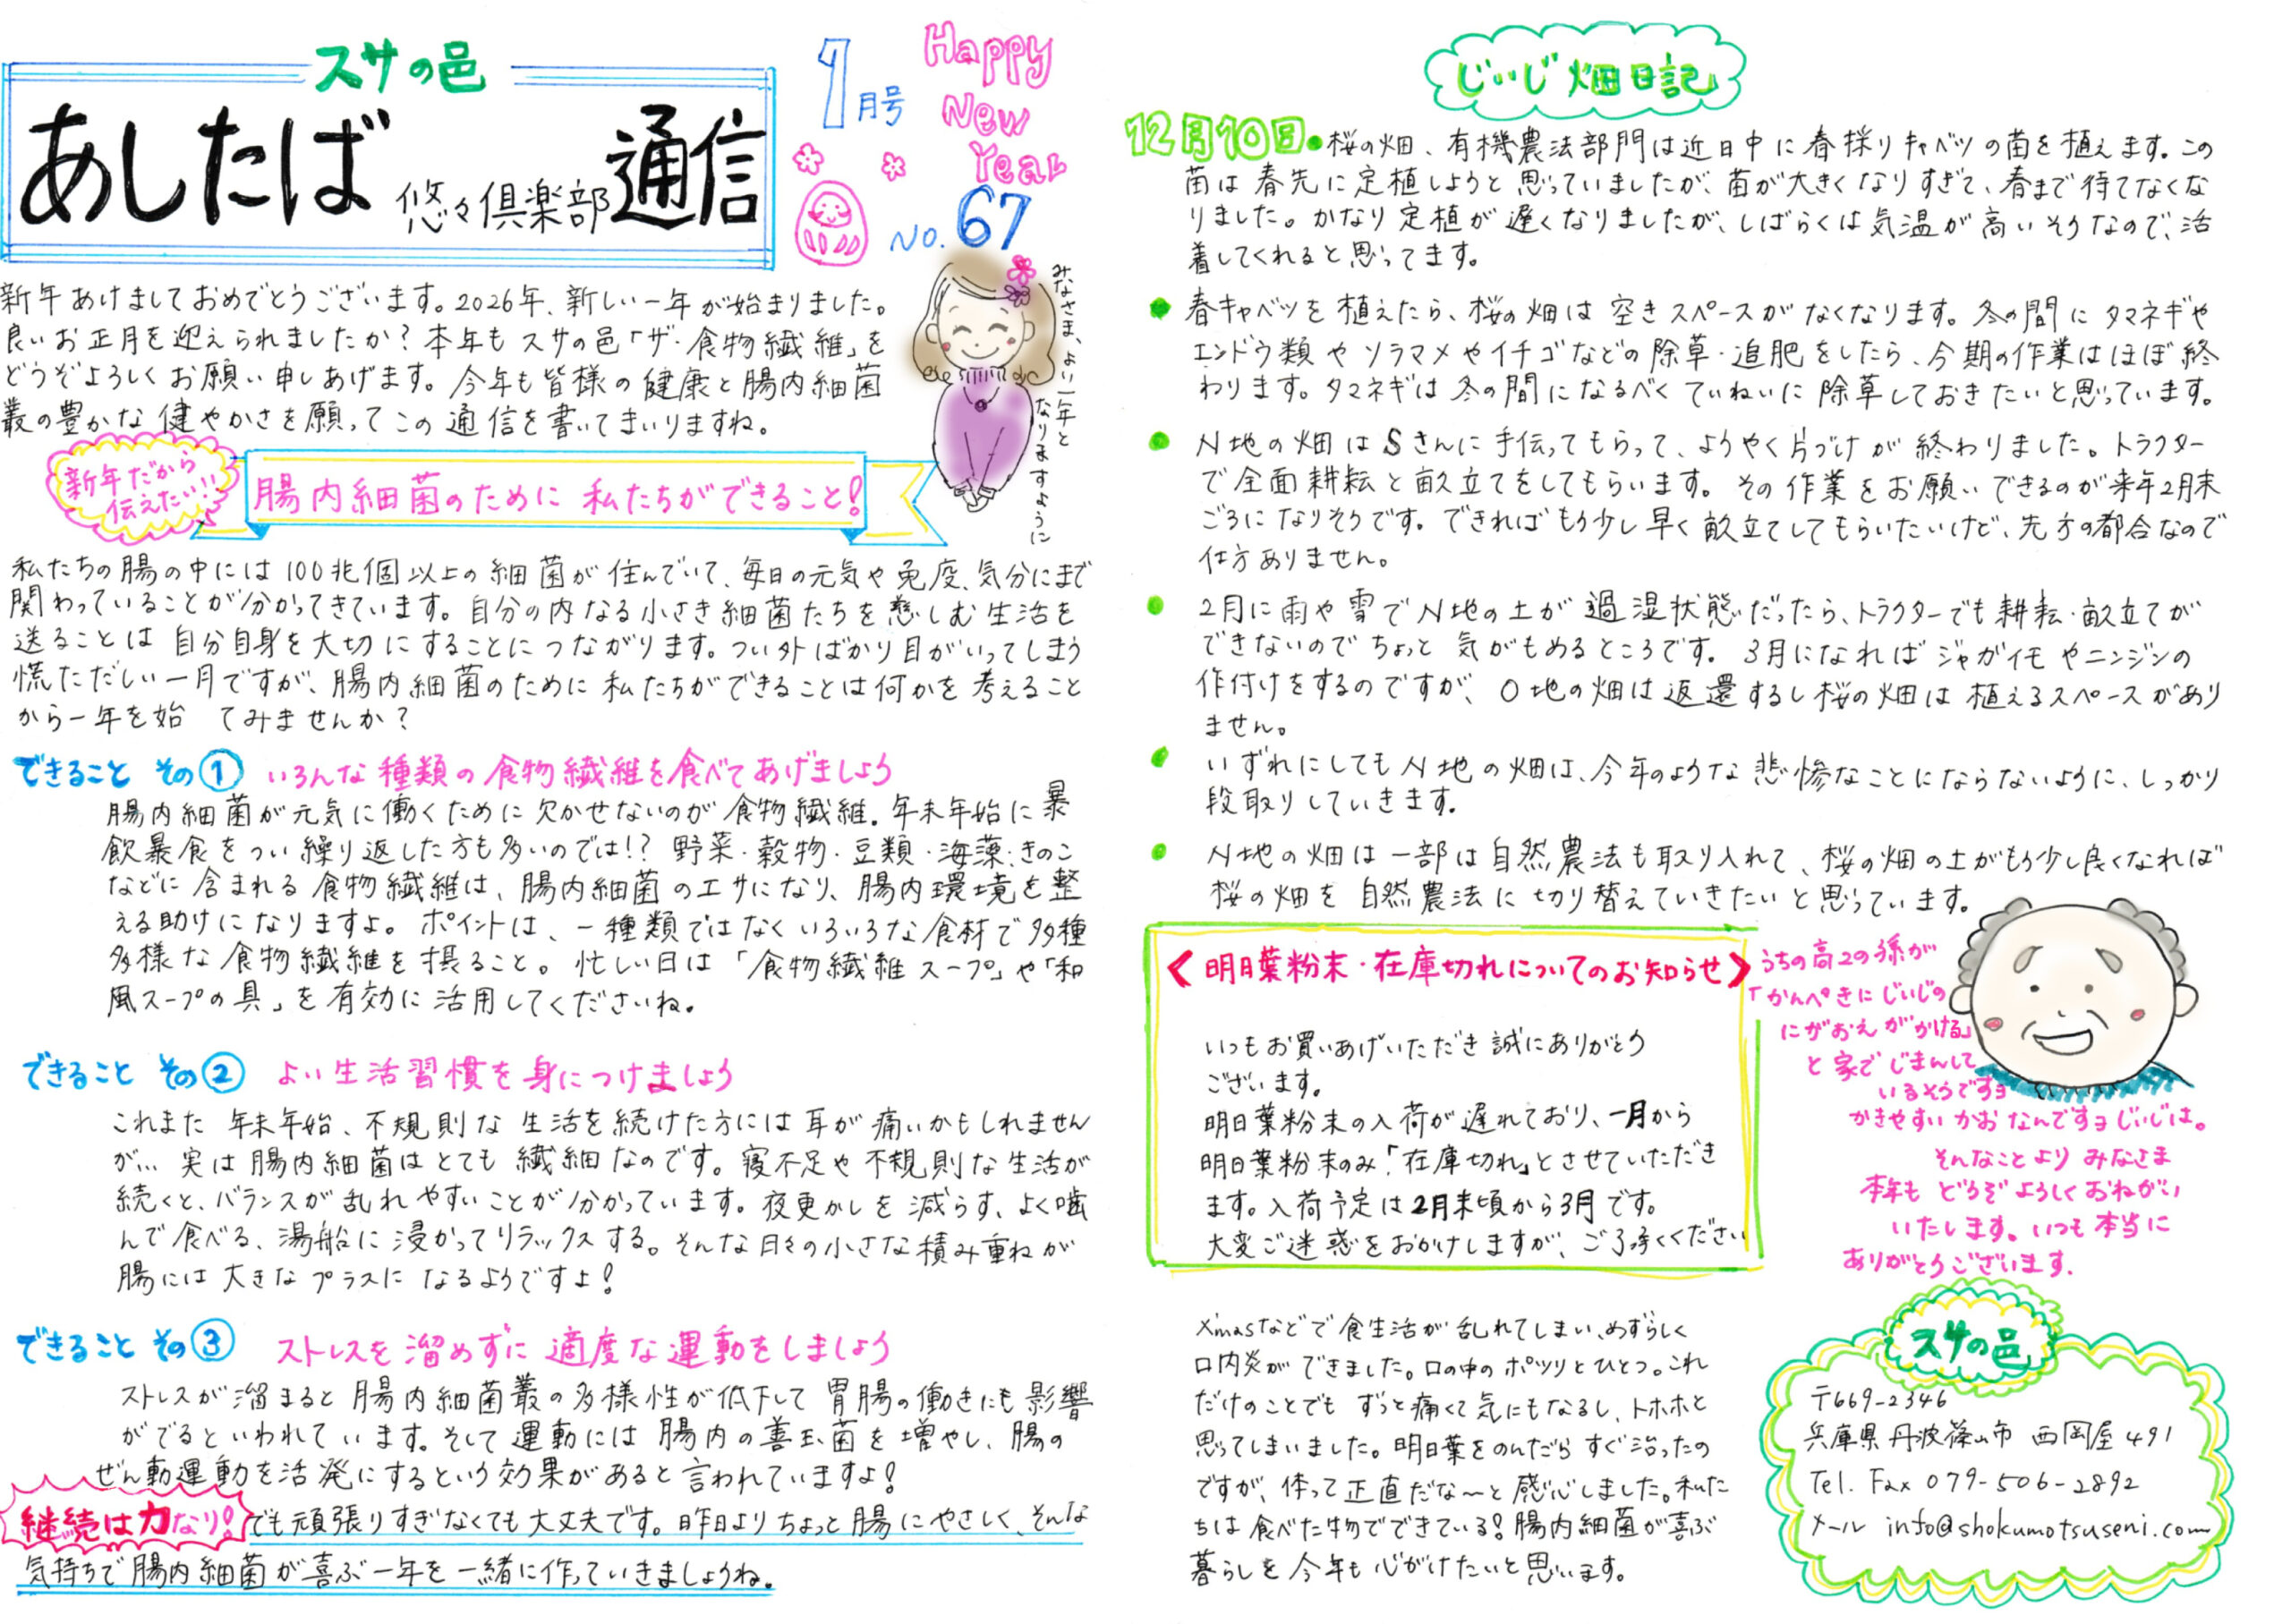 スサの邑
あしたば 悠々倶楽部 通信
1月号
Happy
New
Year
No.67
みなさま、よい一年と
なりますように
新年あけましておめでとうございます。2026年、新しい一年が始まりました。
良いお正月を迎えられましたか?本年もスサの邑「ザ・食物繊維」を
どうぞよろしくお願い申しあげます。今年も皆様の健康と腸内細菌
叢の豊かな健やかさを願ってこの通信を書いてまいりますね。
新年だから
伝えたい!!
腸内細菌のために私たちができること!
私たちの腸の中には100兆個以上の細菌が住んでいて、毎日の元気や免疫、気分にまで
関わっていることが分かってきています。自分の内なる小さき細菌たちを慈しむ生活を
送ることは自分自身を大切にすることにつながります。つい外ばかり目がいってしまう
慌ただしい一月ですが、腸内細菌のために私たちができることは何かを考えること
から一年を始 てみませんか?
できること その① いろんな種類の食物繊維を食べてあげましょう
腸内細菌が元気に働くために欠かせないのが食物繊維。年末年始に暴
飲暴食をつい繰り返した方も多いのでは!?野菜・穀物・豆類・海藻・きのこ
などに含まれる食物繊維は、腸内細菌のエサになり、腸内環境を整
える助けになりますよ。ポイントは、一種類ではなくいろいろな食材で多種
多様な食物繊維を摂ること。忙しい日は「食物繊維スープ」や「和
風スープの具」を有効に活用してくださいね。
できること その② よい生活習慣を身につけましょう
これまた年末年始、不規則な生活を続けた方には耳が痛いかもしれません
が… 実は腸内細菌はとても繊細なのです。寝不足や不規則な生活が
続くと、バランスが乱れやすいことが分かっています。夜更かしを減らす、よく噛
んで食べる、湯船に浸かってリラックスする。そんな日々の小さな積み重ねが
腸には大きなプラスになるようですよ!
できること その③ ストレスを溜めずに適度な運動をしましょう
ストレスが溜まると腸内細菌叢の多様性が低下して胃腸の働きにも影響
がでるといわれています。そして運動には腸内の善玉菌を増やし、腸の
ぜん動運動を活発にするという効果があると言われていますよ!
継続は力なり!でも頑張りすぎなくても大丈夫です。昨日よりちょっと腸にやさしく、そんな
気持ちで腸内細菌が喜ぶ一年を一緒に作っていきましょうね。
じいじ畑日記
12月10日●桜の畑、有機農法部門は近日中に春採りキャベツの苗を植えます。この
苗は春先に定植しようと思っていましたが、苗が大きくなりすぎて、春まで待てなくな
りました。かなり定植が遅くなりましたが、しばらくは気温が高いそうなので、活
着してくれると思ってます。
● 春キャベツを植えたら、桜の畑は空きスペースがなくなります。冬の間にタマネギや
エンドウ類やソラマメやイチゴなどの除草・追肥をしたら、今期の作業はほぼ終
わります。タマネギは冬の間になるべくていねいに除草しておきたいと思っています。
● N地の畑はSさんに手伝ってもらって、ようやく片づけが終わりました。トラクター
で全面耕耘と畝立てをしてもらいます。その作業をお願いできるのが来年2月末
ごろになりそうです。できればもう少し早く畝立てしてもらいたいけど、先方の都合なので
仕方ありません。
● 2月に雨や雪でN地の土が過湿状態だったら、トラクターでも耕耘・畝立てが
できないのでちょっと気がもめるところです。3月になればジャガイモやニンジンの
作付けをするのですが、O地の畑は返還するし桜の畑は植えるスペースがあり
ません。
● いずれにしてもN地の畑は、今年のような悲惨なことにならないように、しっかり
段取りしていきます。
● N地の畑は一部は自然農法も取り入れて、桜の畑の土がもう少し良くなれば
桜の畑を自然農法に切り替えていきたいと思っています。
<明日葉粉末・在庫切れについてのお知らせ>
いつもお買いあげいただき誠にありがとう
ございます。
明日葉粉末の入荷が遅れており、一月から
明日葉粉末のみ「在庫切れ」とさせていただき
ます。入荷予定は2月末頃から3月です。
大変ご迷惑をおかけしますが、ご了承ください
うちの高2の孫が
「かんぺきにじいじの
にがおえがかける」
と家でじまんして
いるそうですヨ
かきやすいかおなんですヨじいじは。
そんなことよりみなさま
本年もどうぞよろしくおねがい
いたします。いつも本当に
ありがとうございます。
Xmasなどで食生活が乱れてしまい、めずらしく
口内炎ができました。口の中のポツリとひとつ。これ
だけのことでもずっと痛くて気にもなるし、トホホと
思ってしまいました。明日葉をのんだらすぐ治ったの
ですが、体って正直だな〜と感心しました。私た
ちは食べた物でできている!腸内細菌が喜ぶ
暮らしを今年も心がけたいと思います。
スサの邑
〒669-2346
兵庫県丹波篠山市西岡屋491
Tel. Fax 079-506-2892
メール info@shokumotsuseni.com